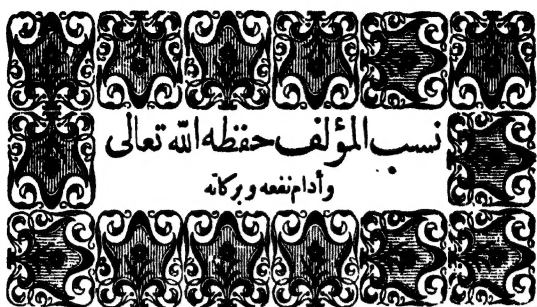 نسب المؤلف حفظه الله تعالى
وأدام نفعه وبركاته